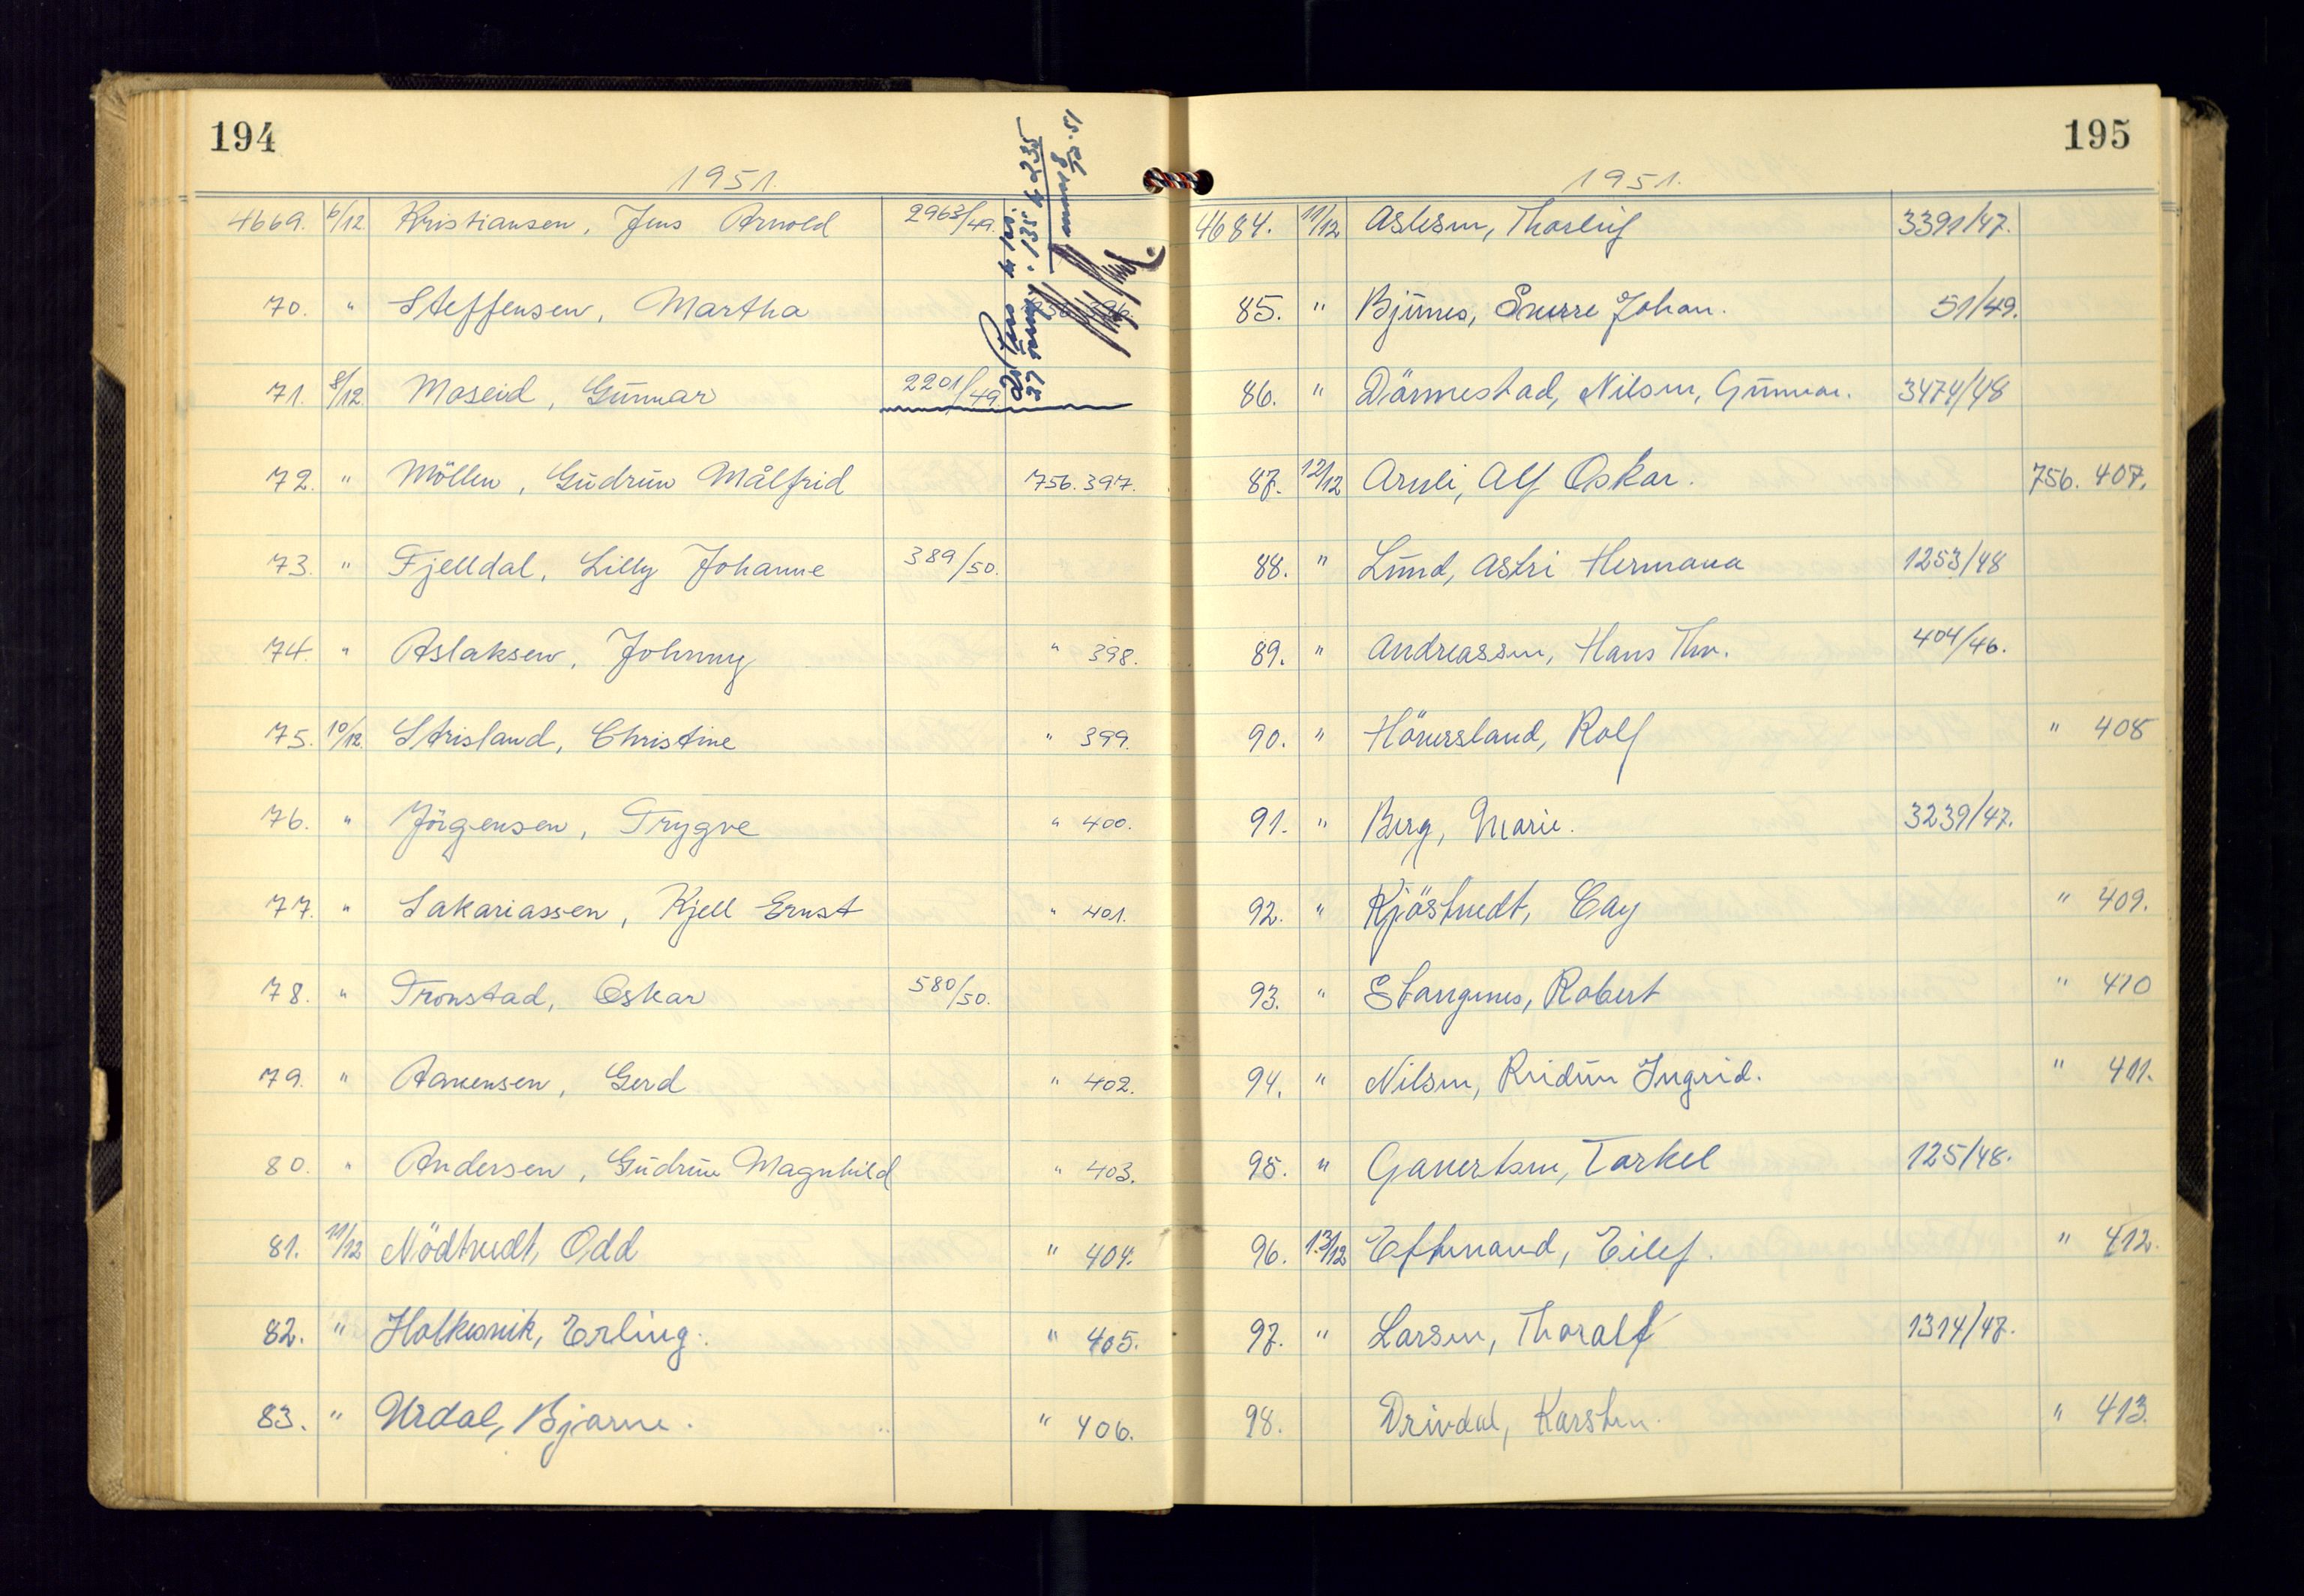 194
1951.
4669. 6/12 Kristiansen, Jens Arnold 2963/49.
70. " Steffensen, Martha
71. 8/12 Moseid, Gunnar 2201/49
72. " Möllen, Gudrun Målfrid 756.397.
73. " Fjelldal, Lilly Johanne 389/50.
74. " Aslaksen, Johnny " 398.
75. 10/12 Strisland, Christine " 399.
76. " Jörgensen, Trygve " 400.
77. " Sakariassen, Kjell Ernst " 401.
78. " Tronstad, Oskar 580/50.
79. " Aanensen, Gerd " 402.
80. " Andersen, Gudrun Magnhild " 403.
81. 11/12 Nödtvedt, Odd " 404.
82. " Holkesvik, Erling. " 405.
83. " Urdal, Bjarne. " 406.
195
1951.
4684. 11/12 Aslesen, Thorleif 3391/47.
85. " Bjünes, Sverre Johan. 51/49.
86. " Dönnestad, Nilsen, Gunnar. 3474/48
87. 12/12 Arneli, Alf Oskar. 756. 407.
88. " Lund, Astri Hermana 1253/48
89. " Andreassen, Hans Thv. 404/46.
90. " Höversland, Rolf " 408
91. " Berg, Marie. 3239/47.
92. " Kjöstvedt, Cay " 409.
93. " Stangenes, Robert " 410
94. " Nilsen, Reidun Ingrid. " 411.
95. " Gauertsen, Torkel 125/48.
96. 13/12 Eftevand, Eilef. " 412.
97. " Larsen, Thoralf 1314/47.
98. Drivdal, Karsten. " 413.